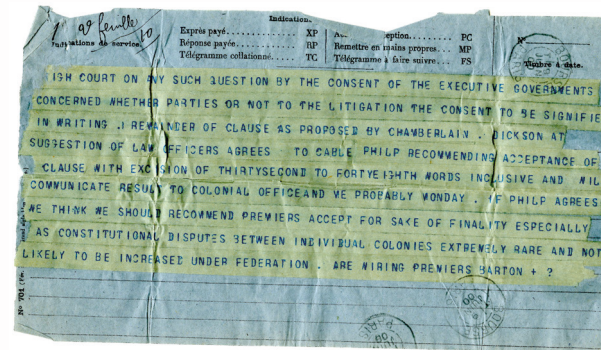 1 2e feuille
10
Indication.
Indications de service.
Exprès payé. XP
Réponse payée. RP
Télégramme collationné. TC
ception. PC
Remettre en mains propres. MP
Télégramme à faire suivre. FS
No
Timbre à date.
ISH COURT ON ANY SUCH QUESTION BY THE CONSENT OF THE EXECUTIVE GOVERNMENTS
CONCERNED WHETHER PARTIES OR NOT TO THE LITIGATION THE CONSENT TO BE SIGNIFIE
IN WRITING . REMAINDER OF CLAUSE AS PROPOSED BY CHAMBERLAIN . DICKSON AT
SUGGESTION OF LAW OFFICERS AGREES TO CABLE PHILP RECOMMENDING ACCEPTANCE OF
CLAUSE WITH EXCISION OF THIRTYSECOND TO FORTYEIGHTH WORDS INCLUSIVE AND WIL
COMMUNICATE RESULT TO COLONIAL OFFICEAND WE PROBABLY MONDAY . IF PHILP AGREES
WE THINK WE SHOULD RECOMMEND PREMIERS ACCEPT FOR SAKE OF FINALITY ESPECIALLY
AS CONSTITUTIONAL DISPUTES BETWEEN INDIVIDUAL COLONIES EXTREMELY RARE AND NOT
LIKELY TO BE INCREASED UNDER FEDERATION . ARE WIRING PREMIERS BARTON + ?
No 701
PARIS